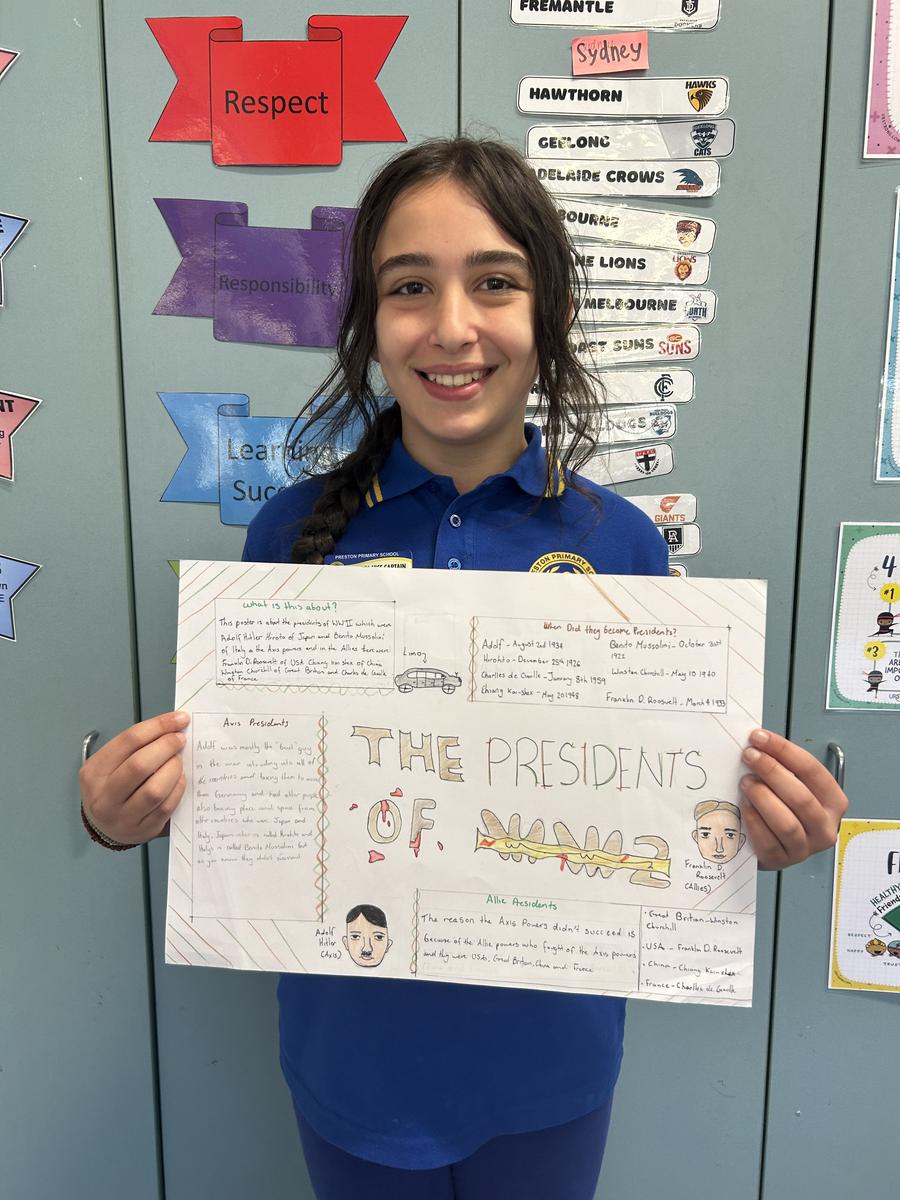 FREMANTLE
Sydney
HAWTHORN
HAWKS
GEELONG
CATS
ADELAIDE CROWS
BOURNE
NE LIONS
LIONS
MELBOURNE
OAST SUNS
SUNS
GIANTS
Respect
Responsibility
Learning
Succ
PRESTON PRIMARY SCHOOL
CAPTAIN
What is this about?
This poster is about the presidents of WWII which were
Adolf Hitler Hiroto of Japan and Benito Mussolini
of Italy a the Axis powers and in the Allies there were
Franklin D. Roosevelt of USA Chiang Kai shek of China
Wington Churchill of Great Britian and Charles de Gaulle
of France
Limo
When Did they become Presidents?
Adolf - August 2nd 1934
Hirohto - December 25th 1926
Charlles de Gaulle - January 8th 1959
Chiang Kai-shek - May 20 1948
Benito Mussolini - October 31st
1922
Winston Churchill - May 10 1940
Franklin D. Roosvelt - March 4 1933
Axis Presidents
Adolf was mostly the "bad" guy
in the war
countries and taking them to
than Germany and had other people
also taking place and space from
other countries who were Japan and
Italy, Japan ruler is called Hirohto and
Italy's is called Benito Mussolini but
as you know they didn't succeed
THE PRESIDENTS
OF WW2
Franklin D.
Roosevelt
(Allies)
Adolf
Hitler
(Axis)
Allie Presidents
The reason the Axis Powers didn't succeed is
because of the Allie powers who fought of the Axis powers
and they were USA, Great Britian, China and France
• Great Britian - Winston
Churchill
• USA - Franklin D. Roosevelt
• China - Chiang Kai-shek
• France - Charlles de Gaulle
4
#1
#3
HEALTHY